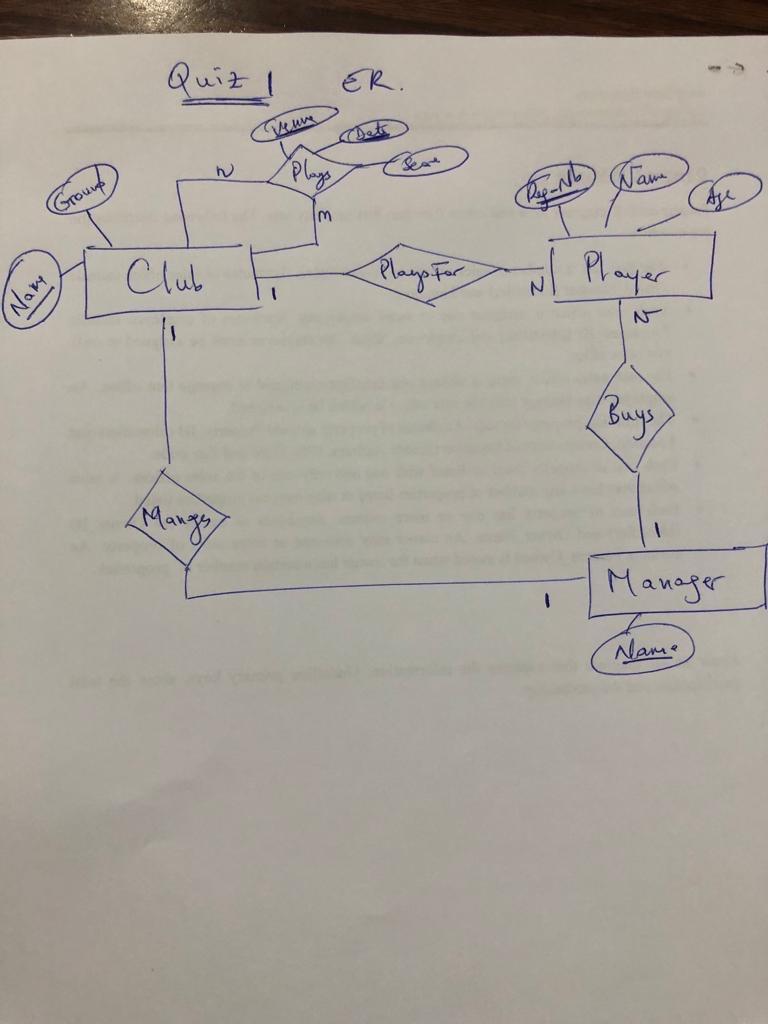 Quiz 1 ER.
Venue
Date
Plays
Score
N
M
Ground
Name
Club
1
PlaysFor
N
Reg-Nb
Name
Age
Player
N
Buys
1
1
Manges
Manager
1
Name